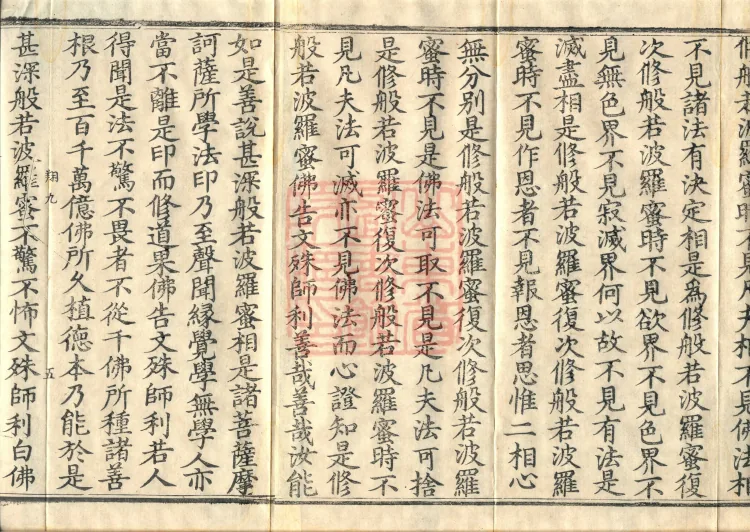 修般若波羅蜜時不見凡夫相不見佛法相
不見諸法有決定相是為修般若波羅蜜復
次修般若波羅蜜時不見欲界不見色界不
見無色界不見寂滅界何以故不見有法是
滅盡相是修般若波羅蜜復次修般若波羅
蜜時不見作恩者不見報恩者思惟二相心
無分别是修般若波羅蜜復次修般若波羅
蜜時不見是佛法可取不見是凡夫法可捨
是修般若波羅蜜復次修般若波羅蜜時不
見凡夫法可滅亦不見佛法而心證知是修
般若波羅蜜佛告文殊師利善哉善哉汝能
如是善說甚深般若波羅蜜相是諸菩薩摩
訶薩所學法印乃至聲聞緣覺學無學人亦
當不離是印而修道果佛告文殊師利若人
得聞是法不驚不畏者不從千佛所種諸善
根乃至百千萬億佛所久植德本乃能於是
翔九 五
甚深般若波羅蜜不驚不怖文殊師利白佛